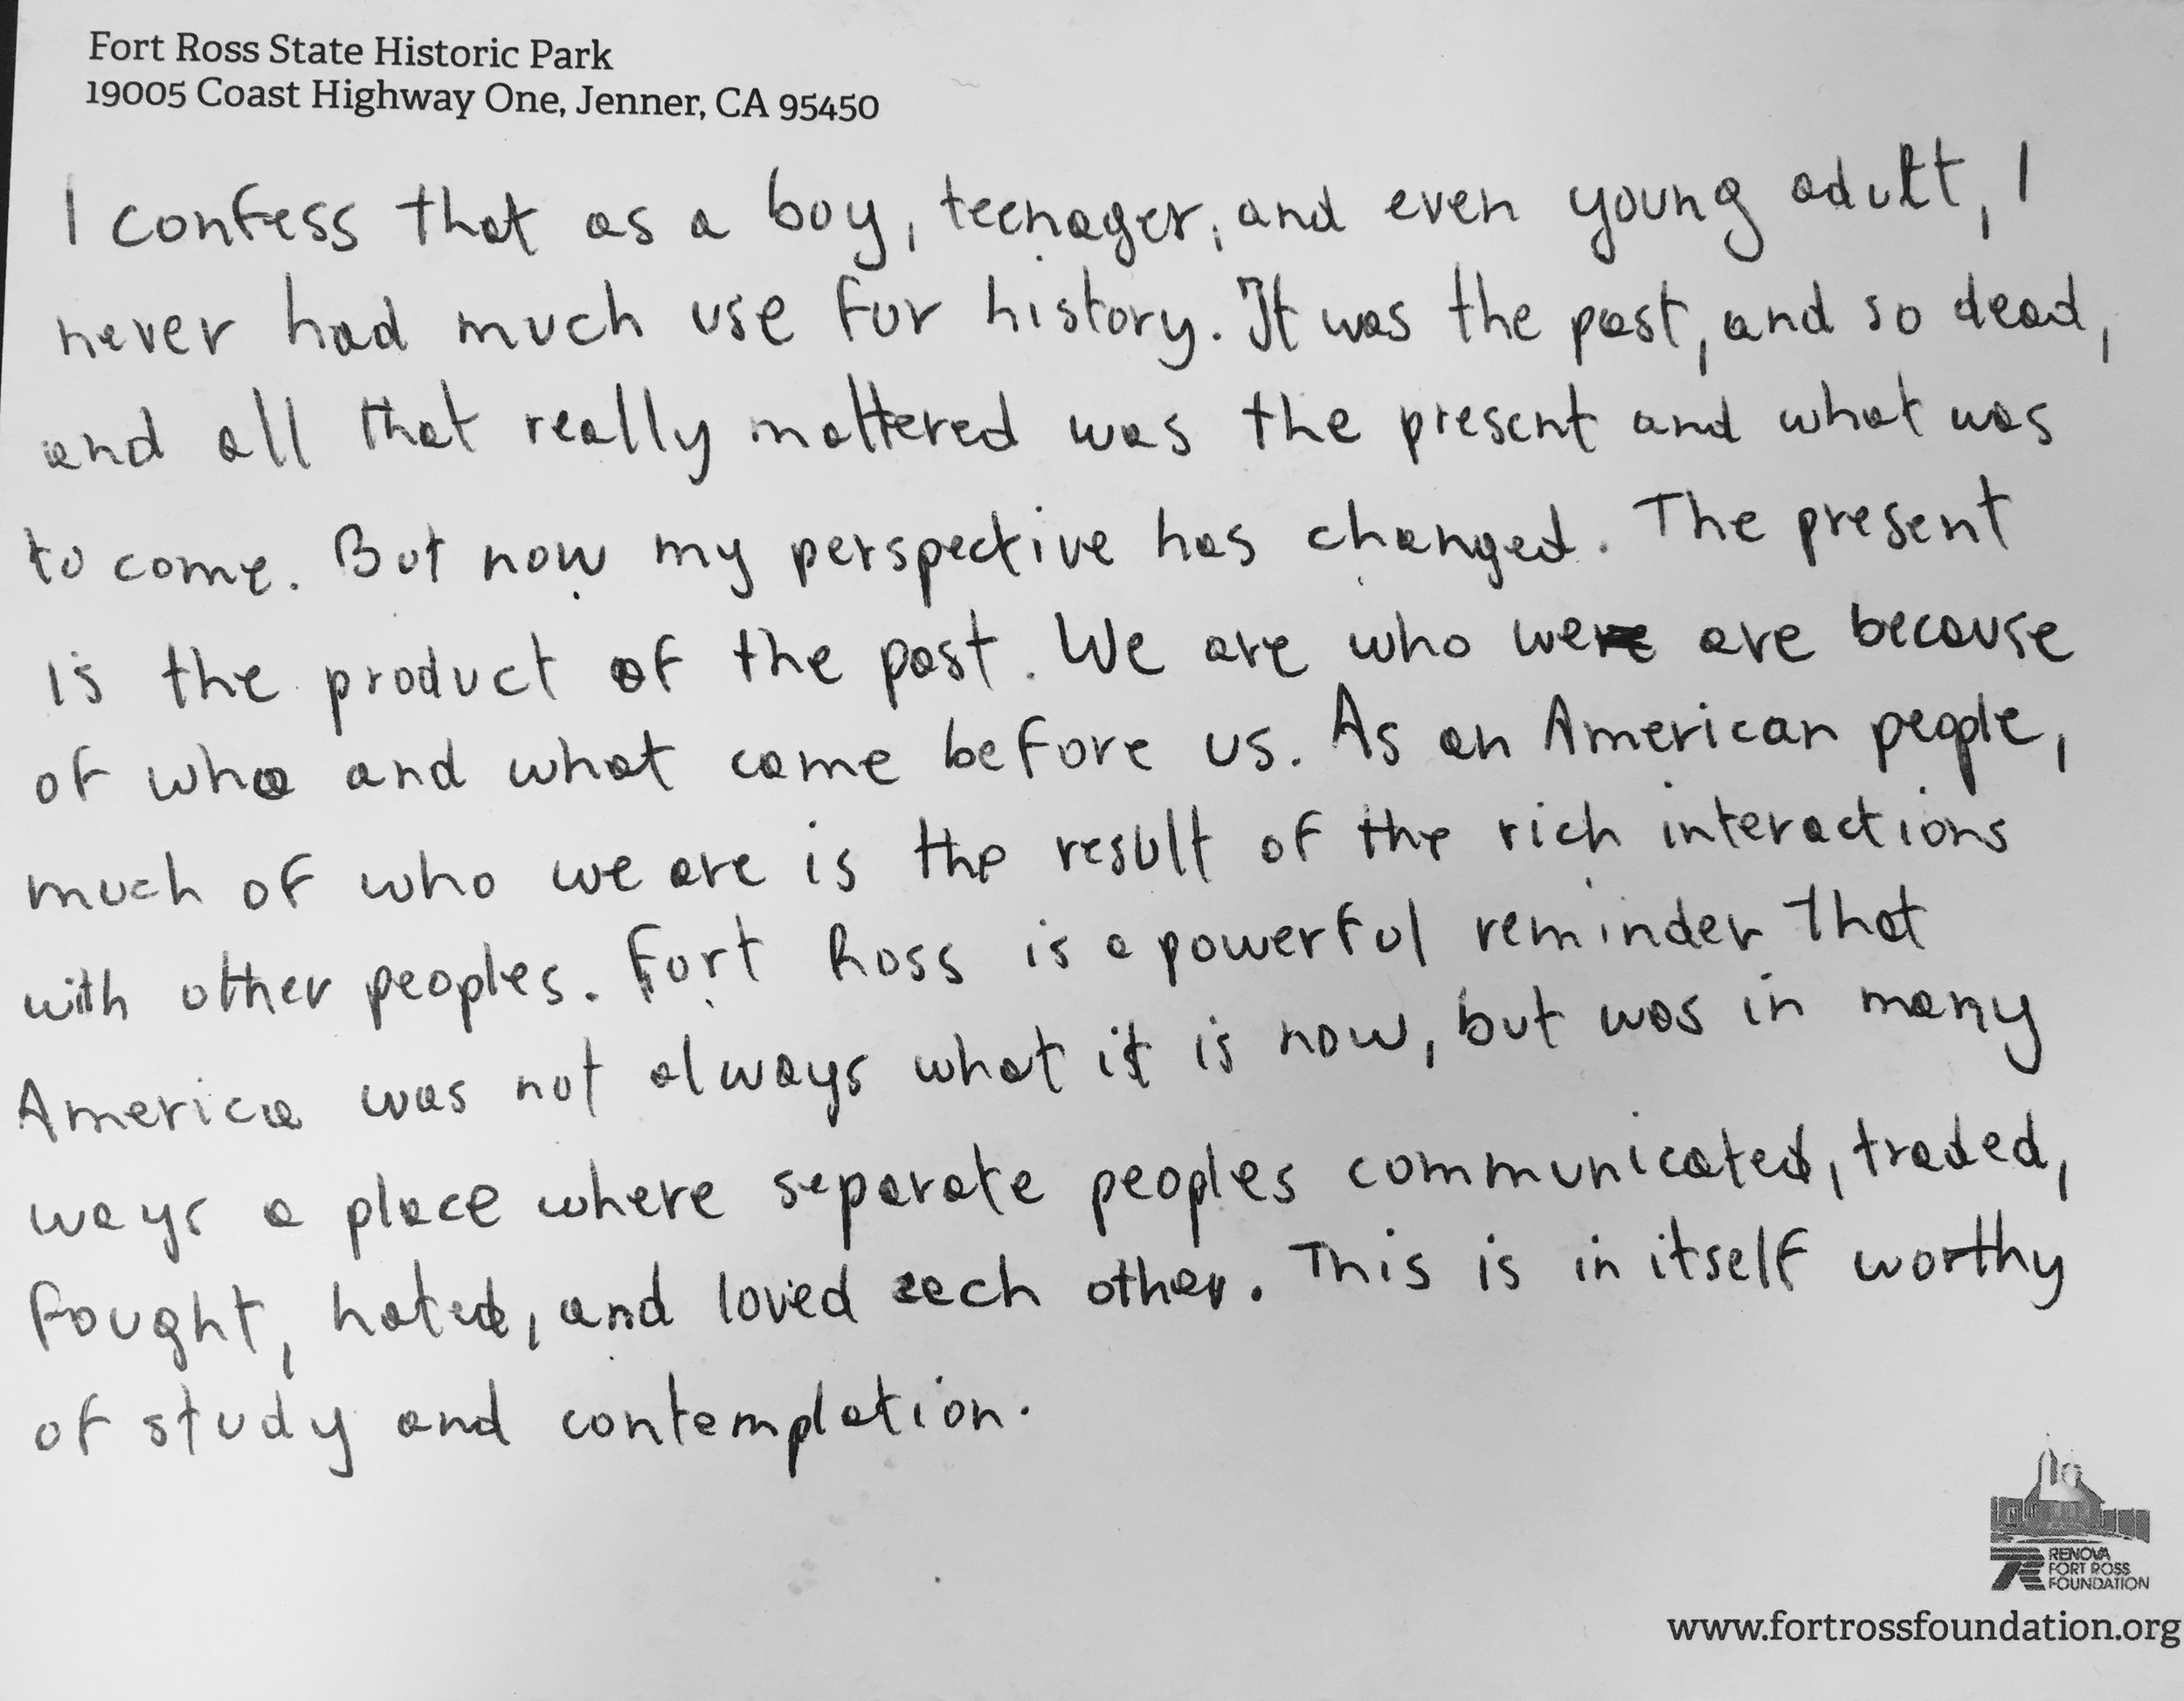 Fort Ross State Historic Park
19005 Coast Highway One, Jenner, CA 95450
I confess that as a boy, teenager, and even young adult, I
never had much use for history. It was the past, and so dead,
and all that really mattered was the present and what was
to come. But now my perspective has changed. The present
is the product of the past. We are who we are because
of who and what came before us. As an American people,
much of who we are is the result of the rich interactions
with other peoples. Fort Ross is a powerful reminder that
America was not always what it is now, but was in many
ways a place where separate peoples communicated, traded,
fought, hated, and loved each other. This is in itself worthy
of study and contemplation.
RENOVA
FORT ROSS
FOUNDATION
www.fortrossfoundation.org